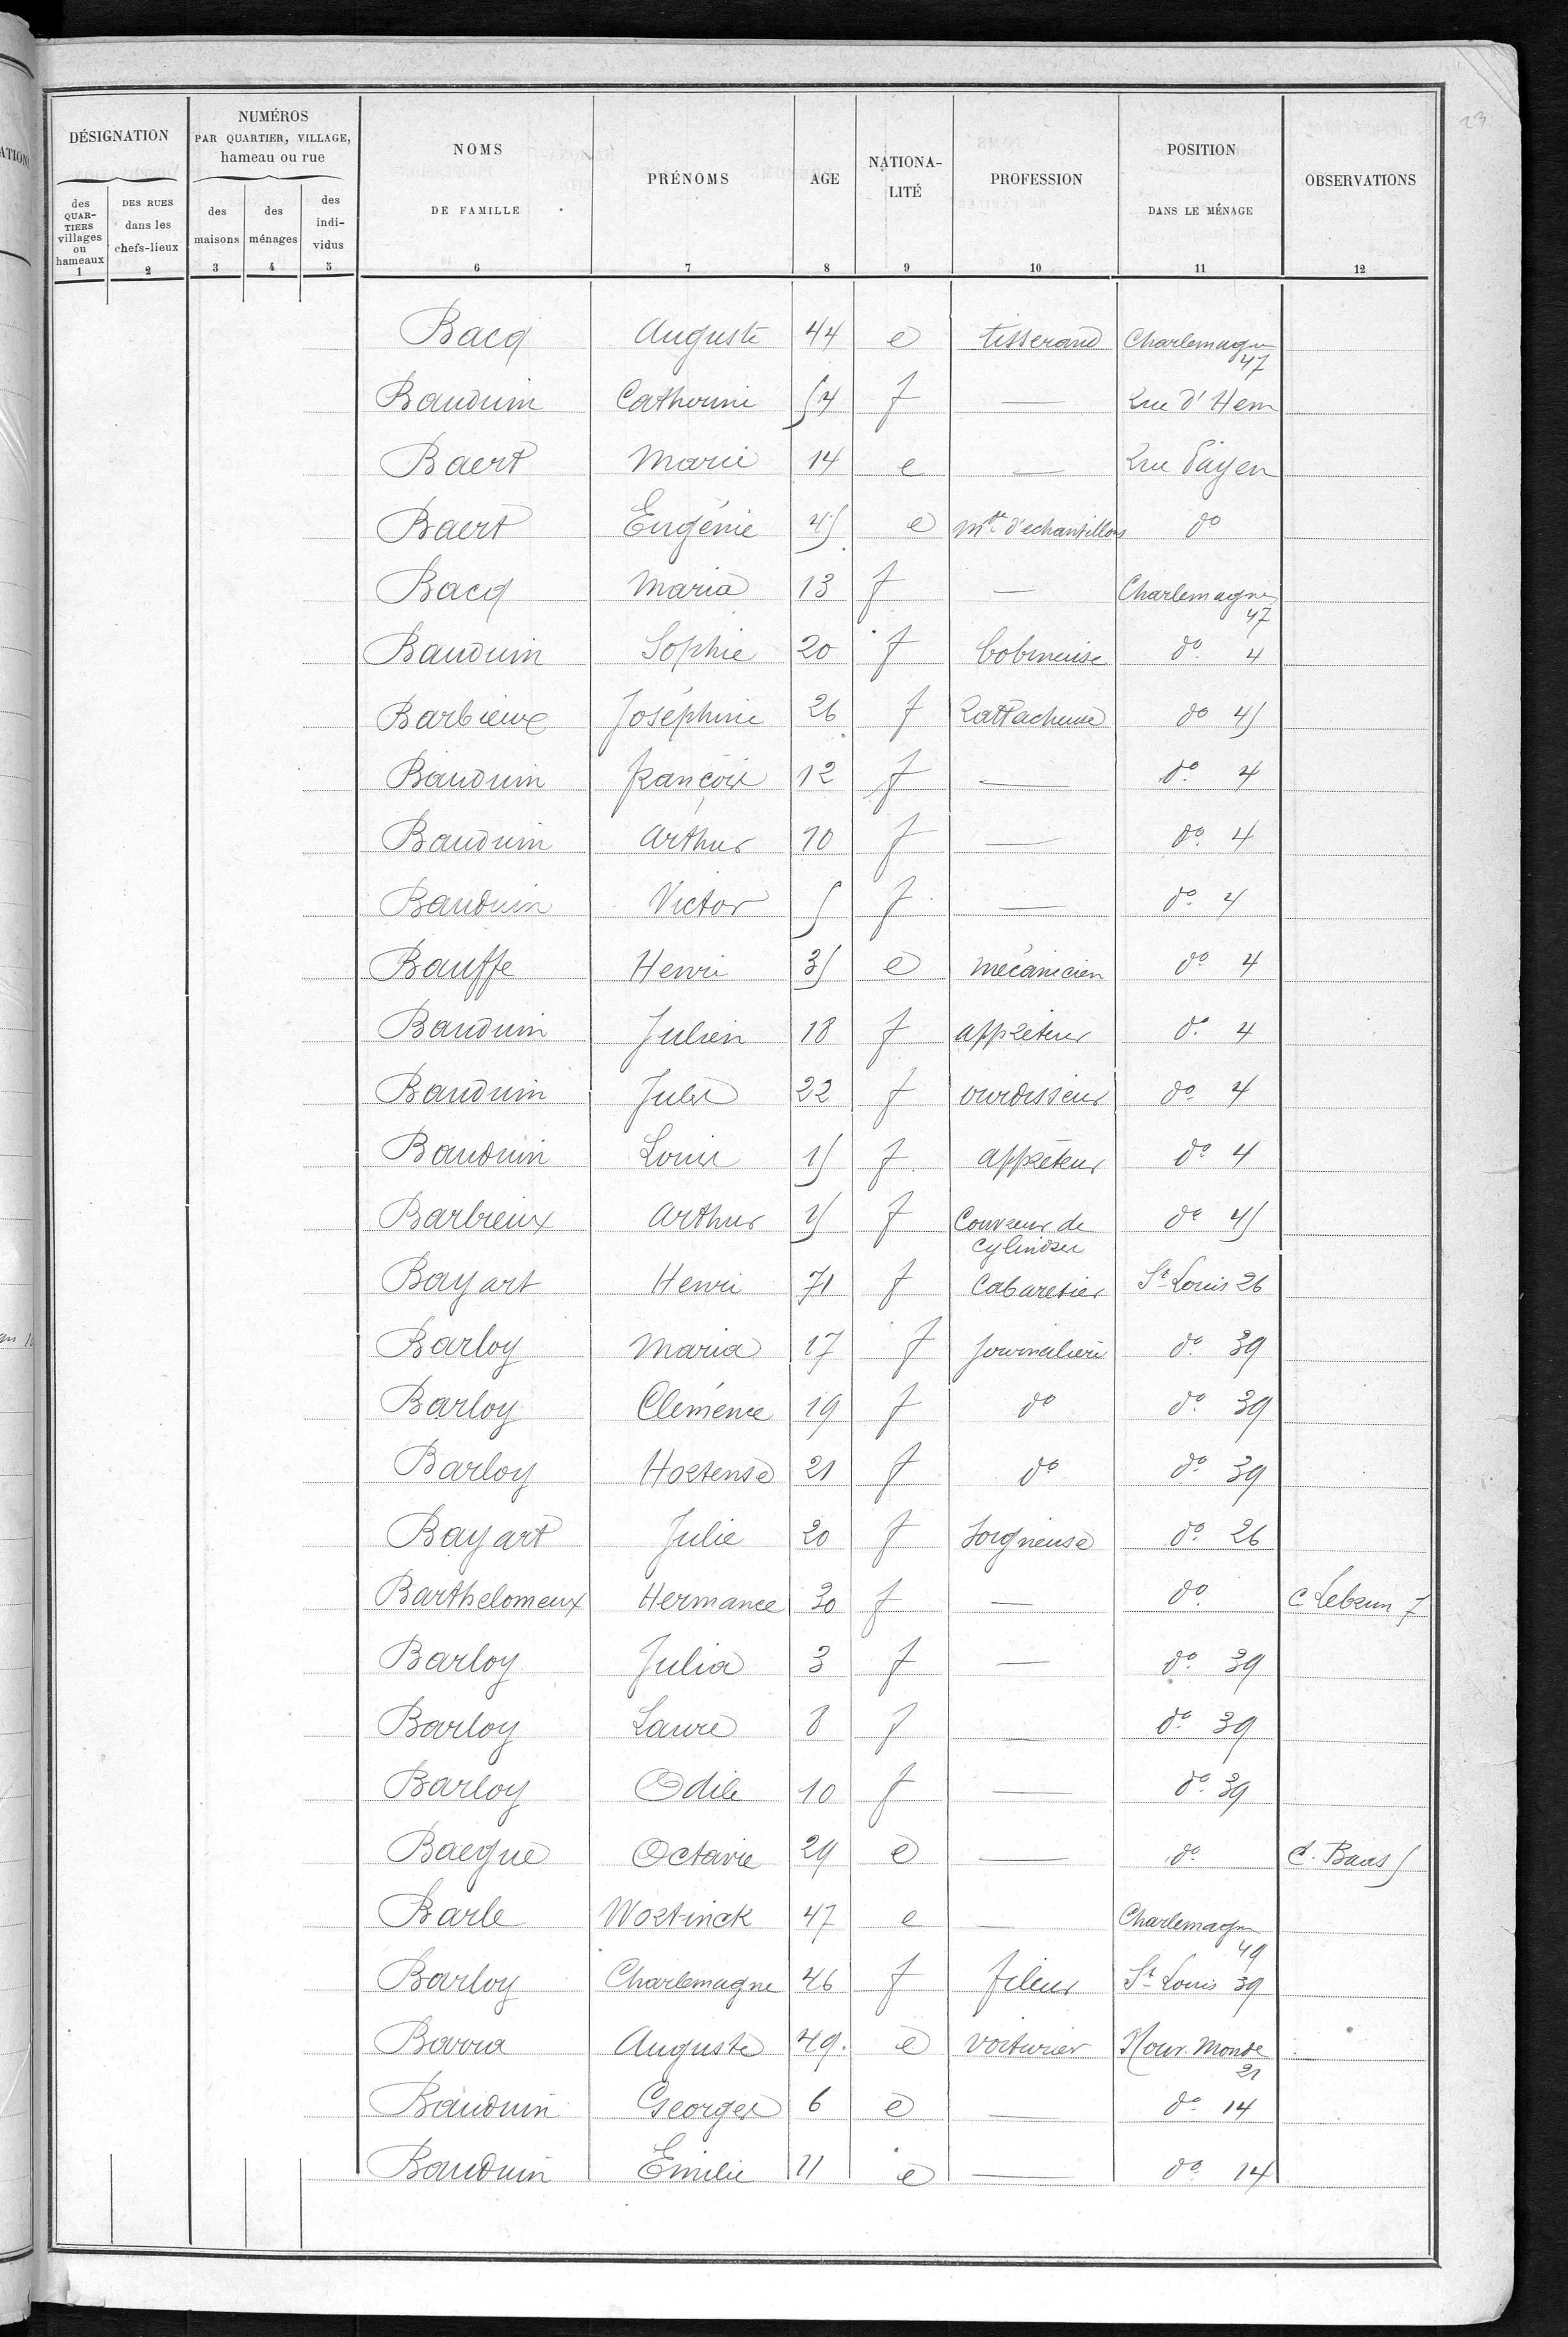 23
DÉSIGNATION
NUMÉROS
PAR QUARTIER, VILLAGE,
hameau ou rue
NOMS
DE FAMILLE
PRÉNOMS
AGE
NATIONA-
LITÉ
PROFESSION
POSITION
DANS LE MÉNAGE
OBSERVATIONS
des
QUAR-
TIERS
villages
ou
hameaux
DES RUES
dans les
chefs-lieux
des
maisons
des
ménages
des
indi-
vidus
1 2 3 4 5 6 7 8 9 10 11 12
Bacq Auguste 44 e tisserand Charlemagne 47
Bauduin Catherine 54 f — Rue d'Hem
Baert Marie 14 e — Rue Payen
Baert Eugénie 45 e mde d'echantillons do
Bacq Maria 13 f — Charlemagne 47
Bauduin Sophie 20 f bobineuse do 4
Barbieux Joséphine 26 f Rattacheuse do 45
Bauduin françois 12 f — do 4
Bauduin Arthur 10 f — do 4
Bauduin Victor 5 f — do 4
Bauffe Henri 35 e mécanicien do 4
Bauduin Julien 18 f appréteur do 4
Bauduin Jules 22 f ourdisseur do 4
Bauduin Louis 15 f appréteur do 4
Barbieux Arthur f Couvreur de cylindres do 45
Bayart Henri 71 f Cabaretier St Louis 26
Barloy Maria 17 f journalière do 39
Barloy Clémence 19 f do do 39
Barloy Hortense 21 f do do 39
Bayart Julie 20 f soigneuse do 26
Barthelomeux Hermance 30 f — do C Lebrun 7
Barloy Julia 3 f — do 39
Barloy Laure 8 f — do 39
Barloy Odile 10 f — do 39
Baegue Octavie 29 e — do C. Baus 5
Barle Wostinck 47 e — Charlemagne 49
Barloy Charlemagne 46 f fileur St Louis 39
Barra Auguste 49. e voiturier Nouv. Monde 21
Bauduin Georges 6 e — do 14
Bauduin Emilie 11 e — do 14